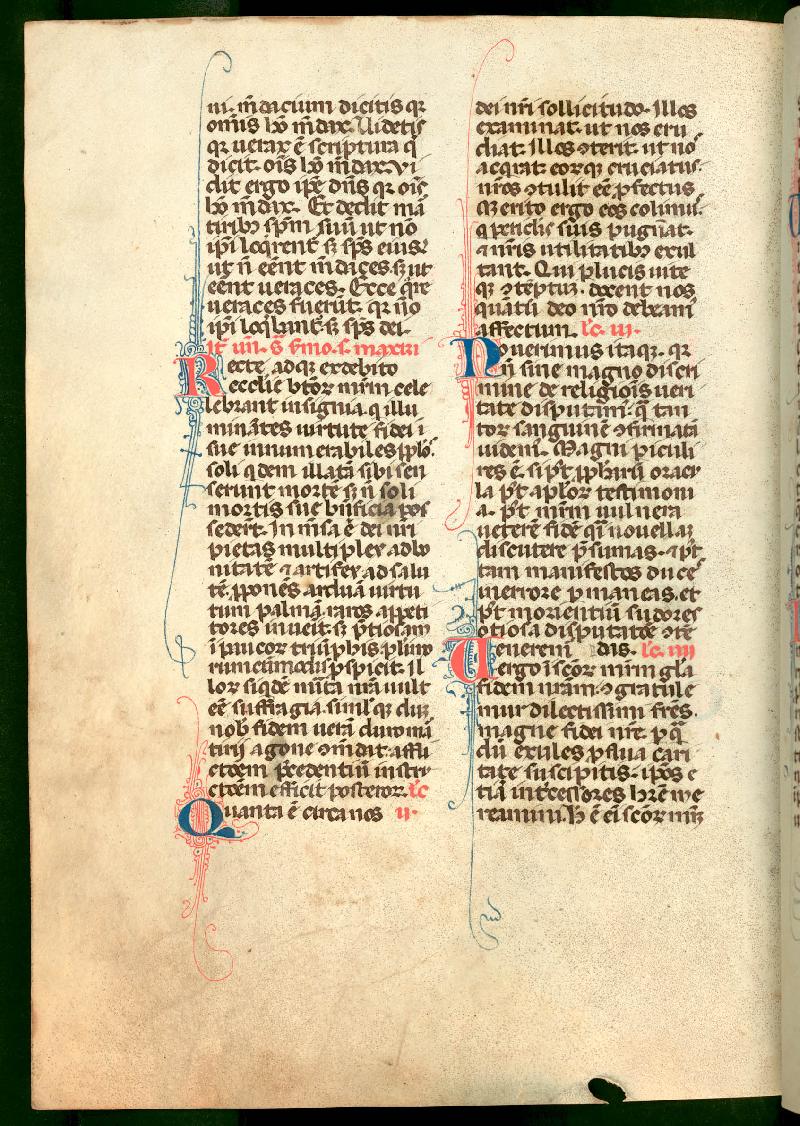 ni. m̄dacium dicitis qꝛ
om̄is hō m̄dax. Uidetis
qꝛ uerax ē scriptura q̄
dicit. ois̄ hō m̄dax. vi
dit ergo ip̄e dn̄s qꝛ ois̄
hō m̄dax. Et dedit mā
tiribꝫ sp̄m suū ut nō
ip̄i loq̄rent᷑ sꝫ sp̄s eius.
ut n̄ eēnt m̄daces. sꝫ ut
eēnt ueraces. Ecce q̄re
ueraces fuerūt. qꝛ nō
ip̄i loq̄bant᷑. sꝫ sp̄s dei.
It̄ un̄. s̄ ẜmo. s. maximi
Recte adqꝫ ex debito
ecc̄lie btōꝝ mr̄m cele
lebrant insignia. q̄ illu
minātes uirtute fidei i
sue innumerabiles pplō.
soli q̄dem illatā sibi sen
serunt mortē sꝫ n̄ soli
mortis sue bn̄ficia pos
sederūt. In m̄sa ē dei nr̄i
pietas multiplex ad bo
nitatē ⁊ artifex ad salu
tē. ꝓponēs arduā uirtu
tum palmā raros appeti
tores inueit. sꝫ p̄tiosam
ī paucoꝝ triūphis plurio
rum cūmodis ꝓspicit. Il
loꝝ siq̄dē mīta nr̄a uult
eē suffragia. simlꝰqꝫ dūꝫ
nob̄ fidem uerā duro mā
tirij agone ꝯm̄dat. affli
ctōem p̄cedentiū instru
ctōem efficit posteroꝝ. lc̄
Quanta ē circa nos ii.
dei nr̄i sollicitudo. Illos
examinat. ut nos eru
diat. Illos ꝯterit. ut nō
acq̄rat. eoꝝqꝫ cruciatus.
nr̄os ꝯtulit eē ꝓfectus.
Merito ergo eos colimus.
q̄ ꝑiclis suis pugnāt.
⁊ nr̄is utilitatibꝫ exul
tant. Qui ꝑ lucis uite
qꝫ ꝯteptū. docent nos
quātū deo nr̄o debeam᷑
affectium. lc̄. iii.
Nouerimus itaqꝫ. qꝛ
nō sine magno discri
mine de religiōis ueri
tate disputam᷑. q̄ tan
toꝝ sanguinē ꝯfirmatā
uidem᷑. Magni ꝑiculi
res ē. si pt̄ ꝓph̄aꝝ oracu
la pt̄ apl̄oꝝ testimoni
a. pt̄ mr̄m uulnera
ueterē fidē q̄ī nouellā
discutere p̄sumas. ⁊ pt̄
tam manifestos duces
ī errore ꝑmaneas. et
pt̄ morientiū sudores
otiosa disputatōe ꝯtē
Uenerem᷑ das. lc̄. iiii
ergo ī scōꝝ mr̄m glā
fidem nr̄am. ⁊ gratule
mur dilectissimi fr̄es.
magne fidei nr̄e. pꝰqꝫ
dū exules ꝓflua cari
tate suscipitis. ip̄os e
tiā int᷑cessores hr̄e me
reamini. H̄ ē eī scōꝝ mr̄m